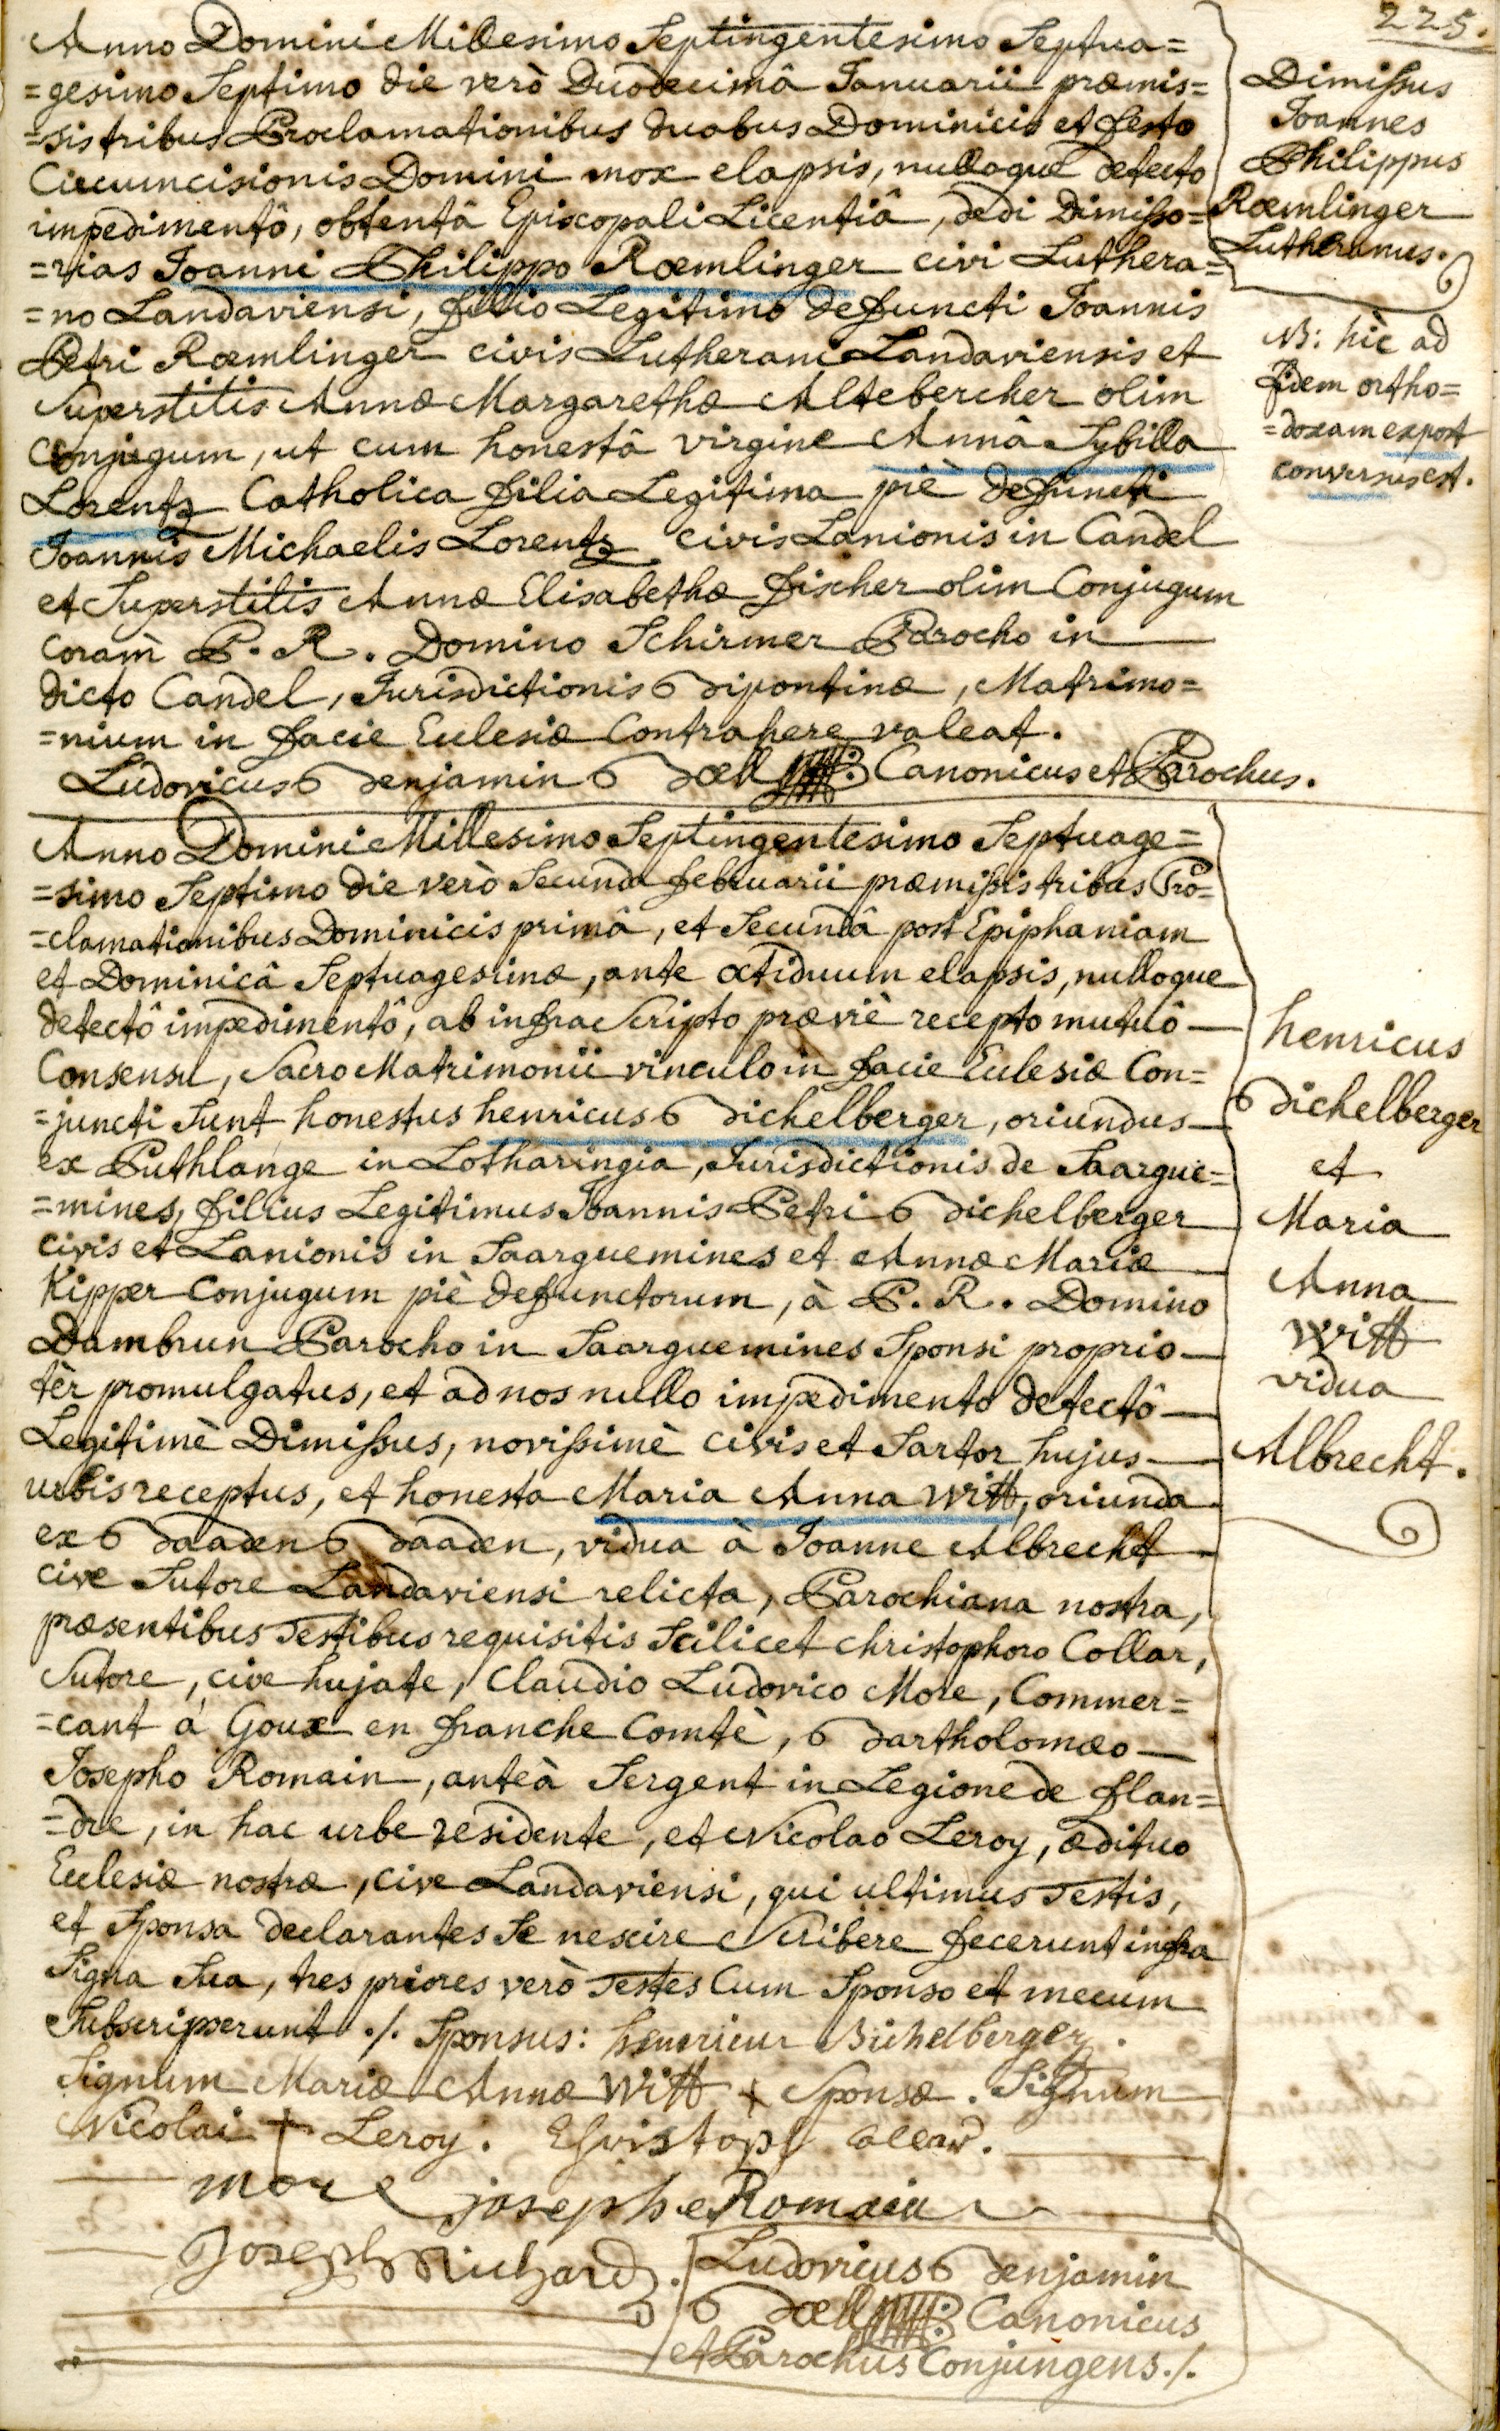 225.
Anno Domini Millesimo Septingentesimo Septua=
=gesimo Septimo die verò Duodecimâ Januarii præmis=
=sis tribus Proclamationibus duobus Dominicis et festo
Circumcisionis Domini mox elapsis, nulloque detecto
impedimentô, obtentâ Episcopali Licentiâ, dedi Dimisso=
=rias Joanni Philippo Rœmlinger civi Luthera=
=no Landaviensi, filio Legitimo defuncti Joannis
Petri Rœmlinger civis Lutherani Landaviensis et
Superstitis Annæ Margarethæ Altebercher olim
Conjugum, ut cum honestâ virgine Annâ Sybilla
Lorentz Catholica filia Legitima piè defuncti
Joannis Michaelis Lorentz civis Lanionis in Candel
et Superstitis Annæ Elisabethæ fischer olim Conjugum
coram P. R. Domino Schirmer Parocho in
dicto Candel, Jurisdictionis Bipontinæ, Matrimo=
=nium in facie Eclesiæ Contrahere valeat.
Ludovicus Benjamin Bœll Canonicus et Parochus.
Dimissus
Joannes
Philippus
Rœmlinger
Lutheranus.
NB: hic ad
fidem ortho=
=doxam expost
conversus est.
Anno Domini Millesimo Septingentesimo Septuage=
=simo Septimo die verò Secunda februarii præmissis tribus Pro=
=clamationibus Dominicis primâ, et Secundâ post Epiphaniam
et Dominicâ Septuagesimæ, ante octiduum elapsis, nulloque
detectô impedimentô, ab infra Scripto præviè recepto mutuô
Consensu, Sacro Matrimonii vinculo in facie Eclesiæ Con=
=juncti Sunt honestus henricus Bichelberger, oriundus
ex Puthlange in Lotharingia, Jurisdictionis de Saargue=
=mines, filius Legitimus Joannis Petri Bichelberger
civis et Lanionis in Saarguemines et Annæ Mariæ
Kipper Conjugum piè defunctorum, à P. R. Domino
Dambrun Parocho in Saarguemines Sponsi proprio
tèr promulgatus, et ad nos nullo impedimento detectô
Legitimè Dimissus, novissimè civis et Sartor hujus
urbis receptus, et honesta Maria Anna Witt, oriunda
ex Baaden Baaden, vidua à Joanne Albrecht
cive Sutore Landaviensi relicta, Parochiana nostra,
præsentibus Testibus requisitis Scilicet christophoro Collar,
Sutore, cive hujate, Claudio Ludovico More, Commer=
=cant à Goux en franche Comtè, Bartholomæo
Josepho Romain, anteà Sergent in Legione de flan=
=dre, in hac urbe residente, et Nicolao Leroy, ædituo
Eclesiæ nostræ, cive Landaviensi, qui ultimus Testis,
et Sponsa declarantes Se nescire Scribere fecerunt infra
Signa Sua, tres priores verò Testes Cum Sponso et mecum
Subscripserunt ./. Sponsus: henricus Bichelberger.
Signum Mariæ Annæ Witt + Sponsæ. Signum
Nicolai + Leroy.
more josephe Romain
Joseph Richard.
Ludovicus Benjamin
Bœll Canonicus
et Parochus Conjungens./.
henricus
Bichelberger
et
Maria
Anna
Witt
vidua
Albrecht.